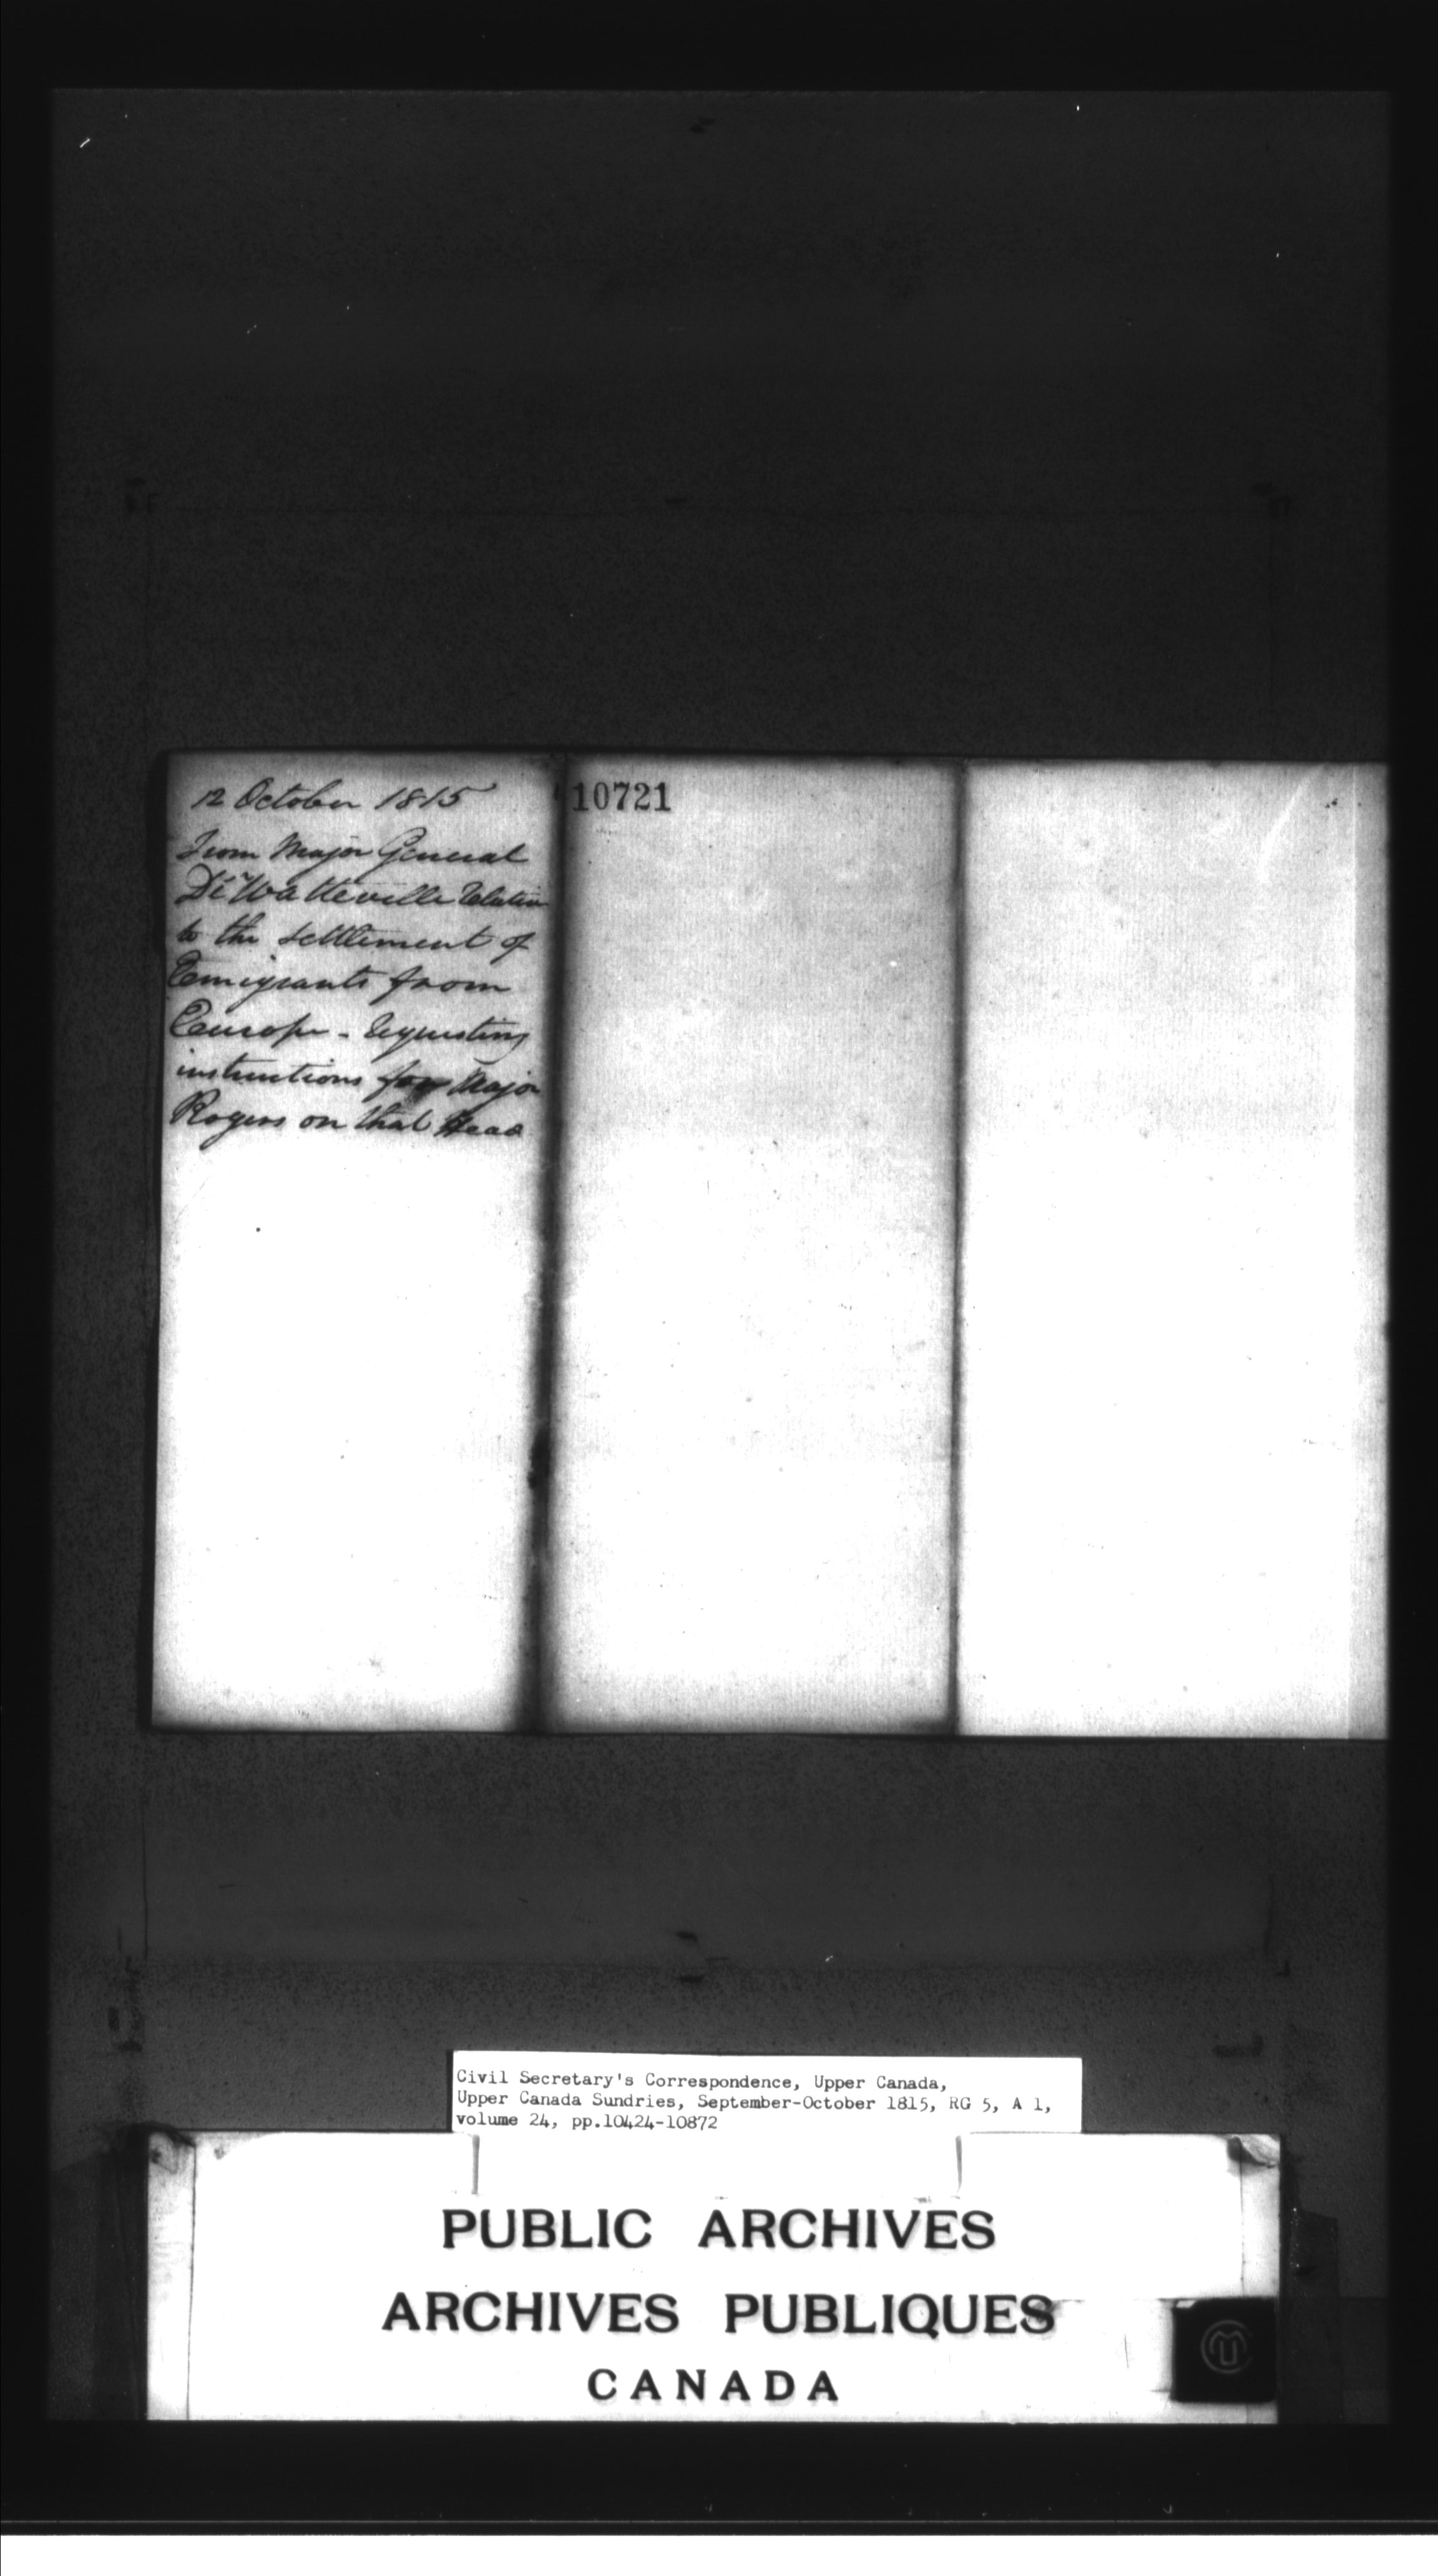 12 October 1815
From Major General
De Watteville relative
to the settlement of
Emigrants from
Europe - requesting
instructions for Major
Rogers on that Head
10721
Civil Secretary's Correspondence, Upper Canada,
Upper Canada Sundries, September-October 1815, RG 5, A 1,
volume 24, pp.10424-10872
PUBLIC ARCHIVES
ARCHIVES PUBLIQUES
CANADA